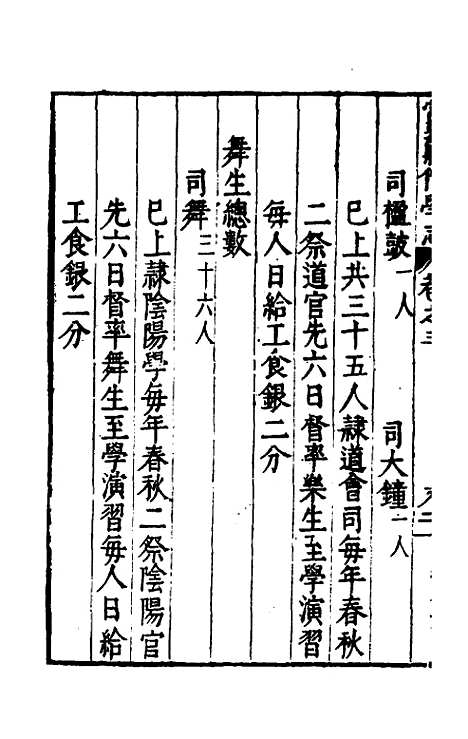 學志 卷之三
司楹鼓一人 司大鐘一人
已上共三十五人隷道會司每年春秋
二祭道官先六日督率樂生至學演習
每人日給工食銀二分
舞生總數
司舞三十六人
已上隷陰陽學每年春秋二祭陰陽官
先六日督率舞生至學演習每人日給
工食銀二分